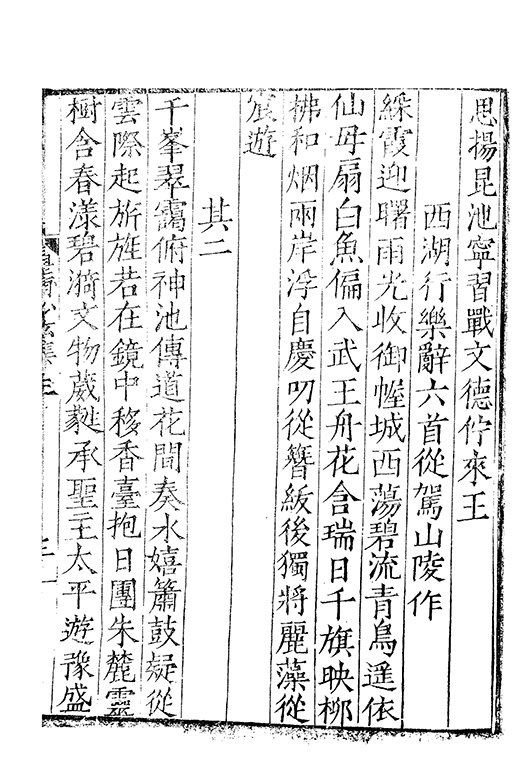 思揚昆池寧習戰文德佇來王
西湖行樂辭六首從駕山陵作
綵霞迎曙雨光收御幄城西蕩碧流青鳥遥依
仙母扇白魚偏入武王舟花含瑞日千旗映柳
拂和烟兩岸浮自慶叨從簪紱後獨將麗藻從
宸遊
其二
千峯翠靄俯神池傳道花間奏水嬉簫鼓疑從
雲際起旂旌若在鏡中移香臺抱日團朱麓靈
樹含春漾碧漪文物葳蕤承聖主太平遊豫盛